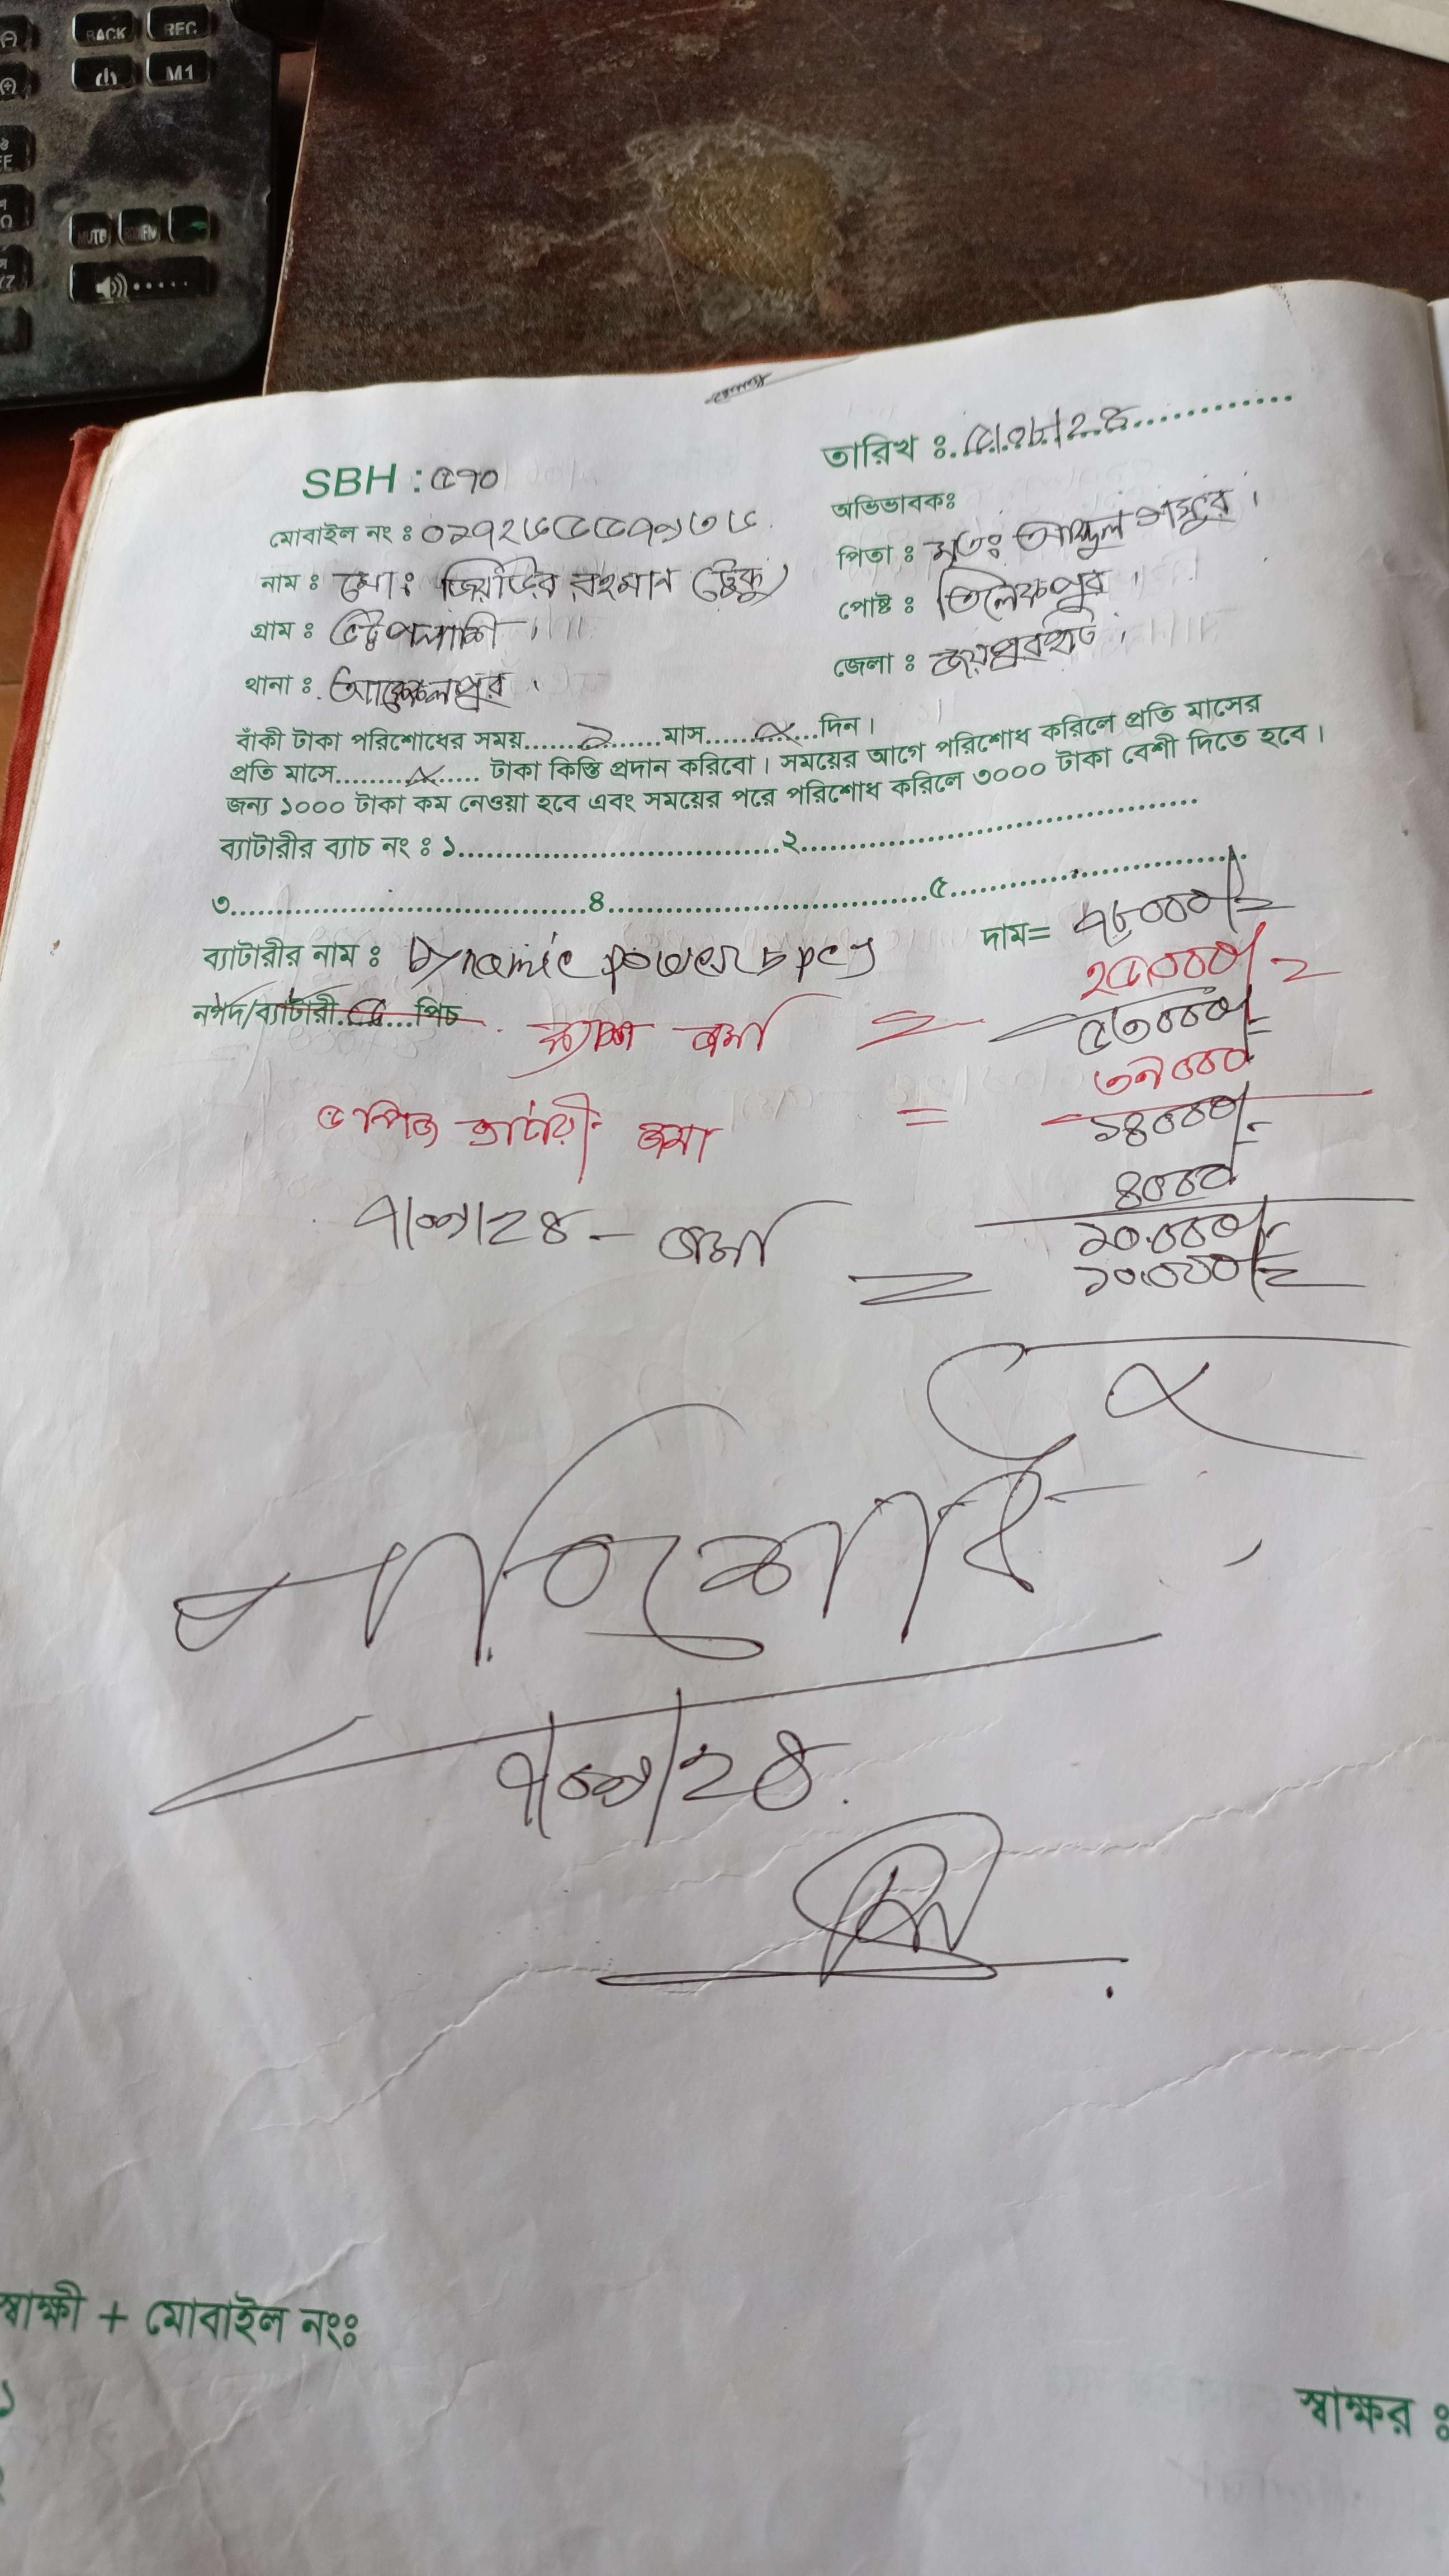 BACK REC
M1
MUTE
SBH : ৫৭০
তারিখ : ৫/০৮/২৪
মোবাইল নং :
অভিভাবকঃ
নাম : মোঃ জিয়াউর রহমান (টুকু)
পিতা : মৃতঃ আব্দুল গফুর।
গ্রাম :
পোষ্ট : তিলেকপুর।
থানা : আক্কেলপুর।
জেলা : জয়পুরহাট।
বাঁকী টাকা পরিশোধের সময়........১........মাস........×........দিন।
প্রতি মাসে........×........ টাকা কিস্তি প্রদান করিবো। সময়ের আগে পরিশোধ করিলে প্রতি মাসের
জন্য ১০০০ টাকা কম নেওয়া হবে এবং সময়ের পরে পরিশোধ করিলে ৩০০০ টাকা বেশী দিতে হবে।
ব্যাটারীর ব্যাচ নং : ১........২........
৩........৪........৫........
ব্যাটারীর নাম : Dynamic power 5 pcs
দাম= ৭৮০০০/=
নগদ/ব্যাটারী.৫...পিচ
২৫০০০/=
ক্যাশ জমা = ৫৩০০০/=
৩৯০০০
৫ পিচ ব্যাটারী জমা = ১৪০০০/=
৪০০০
৭/৯/২৪ - জমা
১০,০০০/=
= ১০,০০০/=
×
পরিশোধ
৭/৯/২৪
স্বাক্ষী + মোবাইল নংঃ
১
স্বাক্ষর :
২